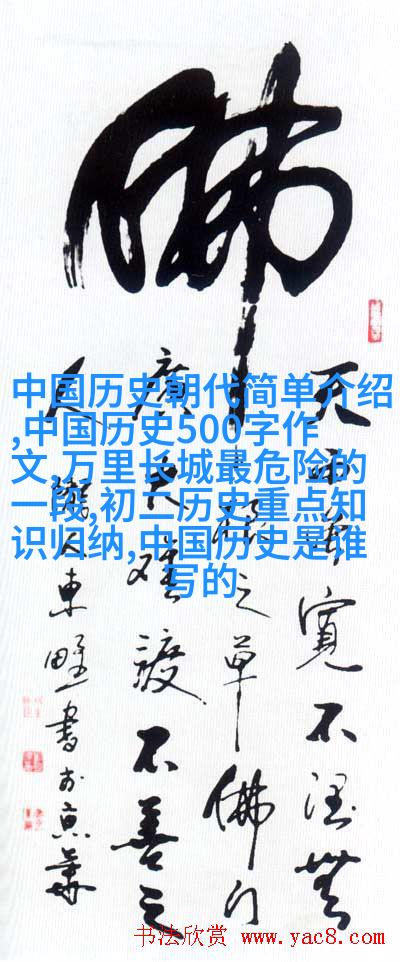 佛
天雨雖寬不润無
根之草佛门
廣大難渡不善之
人 隴人東野書于京華
中国历史朝代简单介绍
,中国历史500字作
文,万里长城最危险的
一段,初二历史重点知
识归纳,中国历史是谁
写的
书法欣赏 www.yac8.com